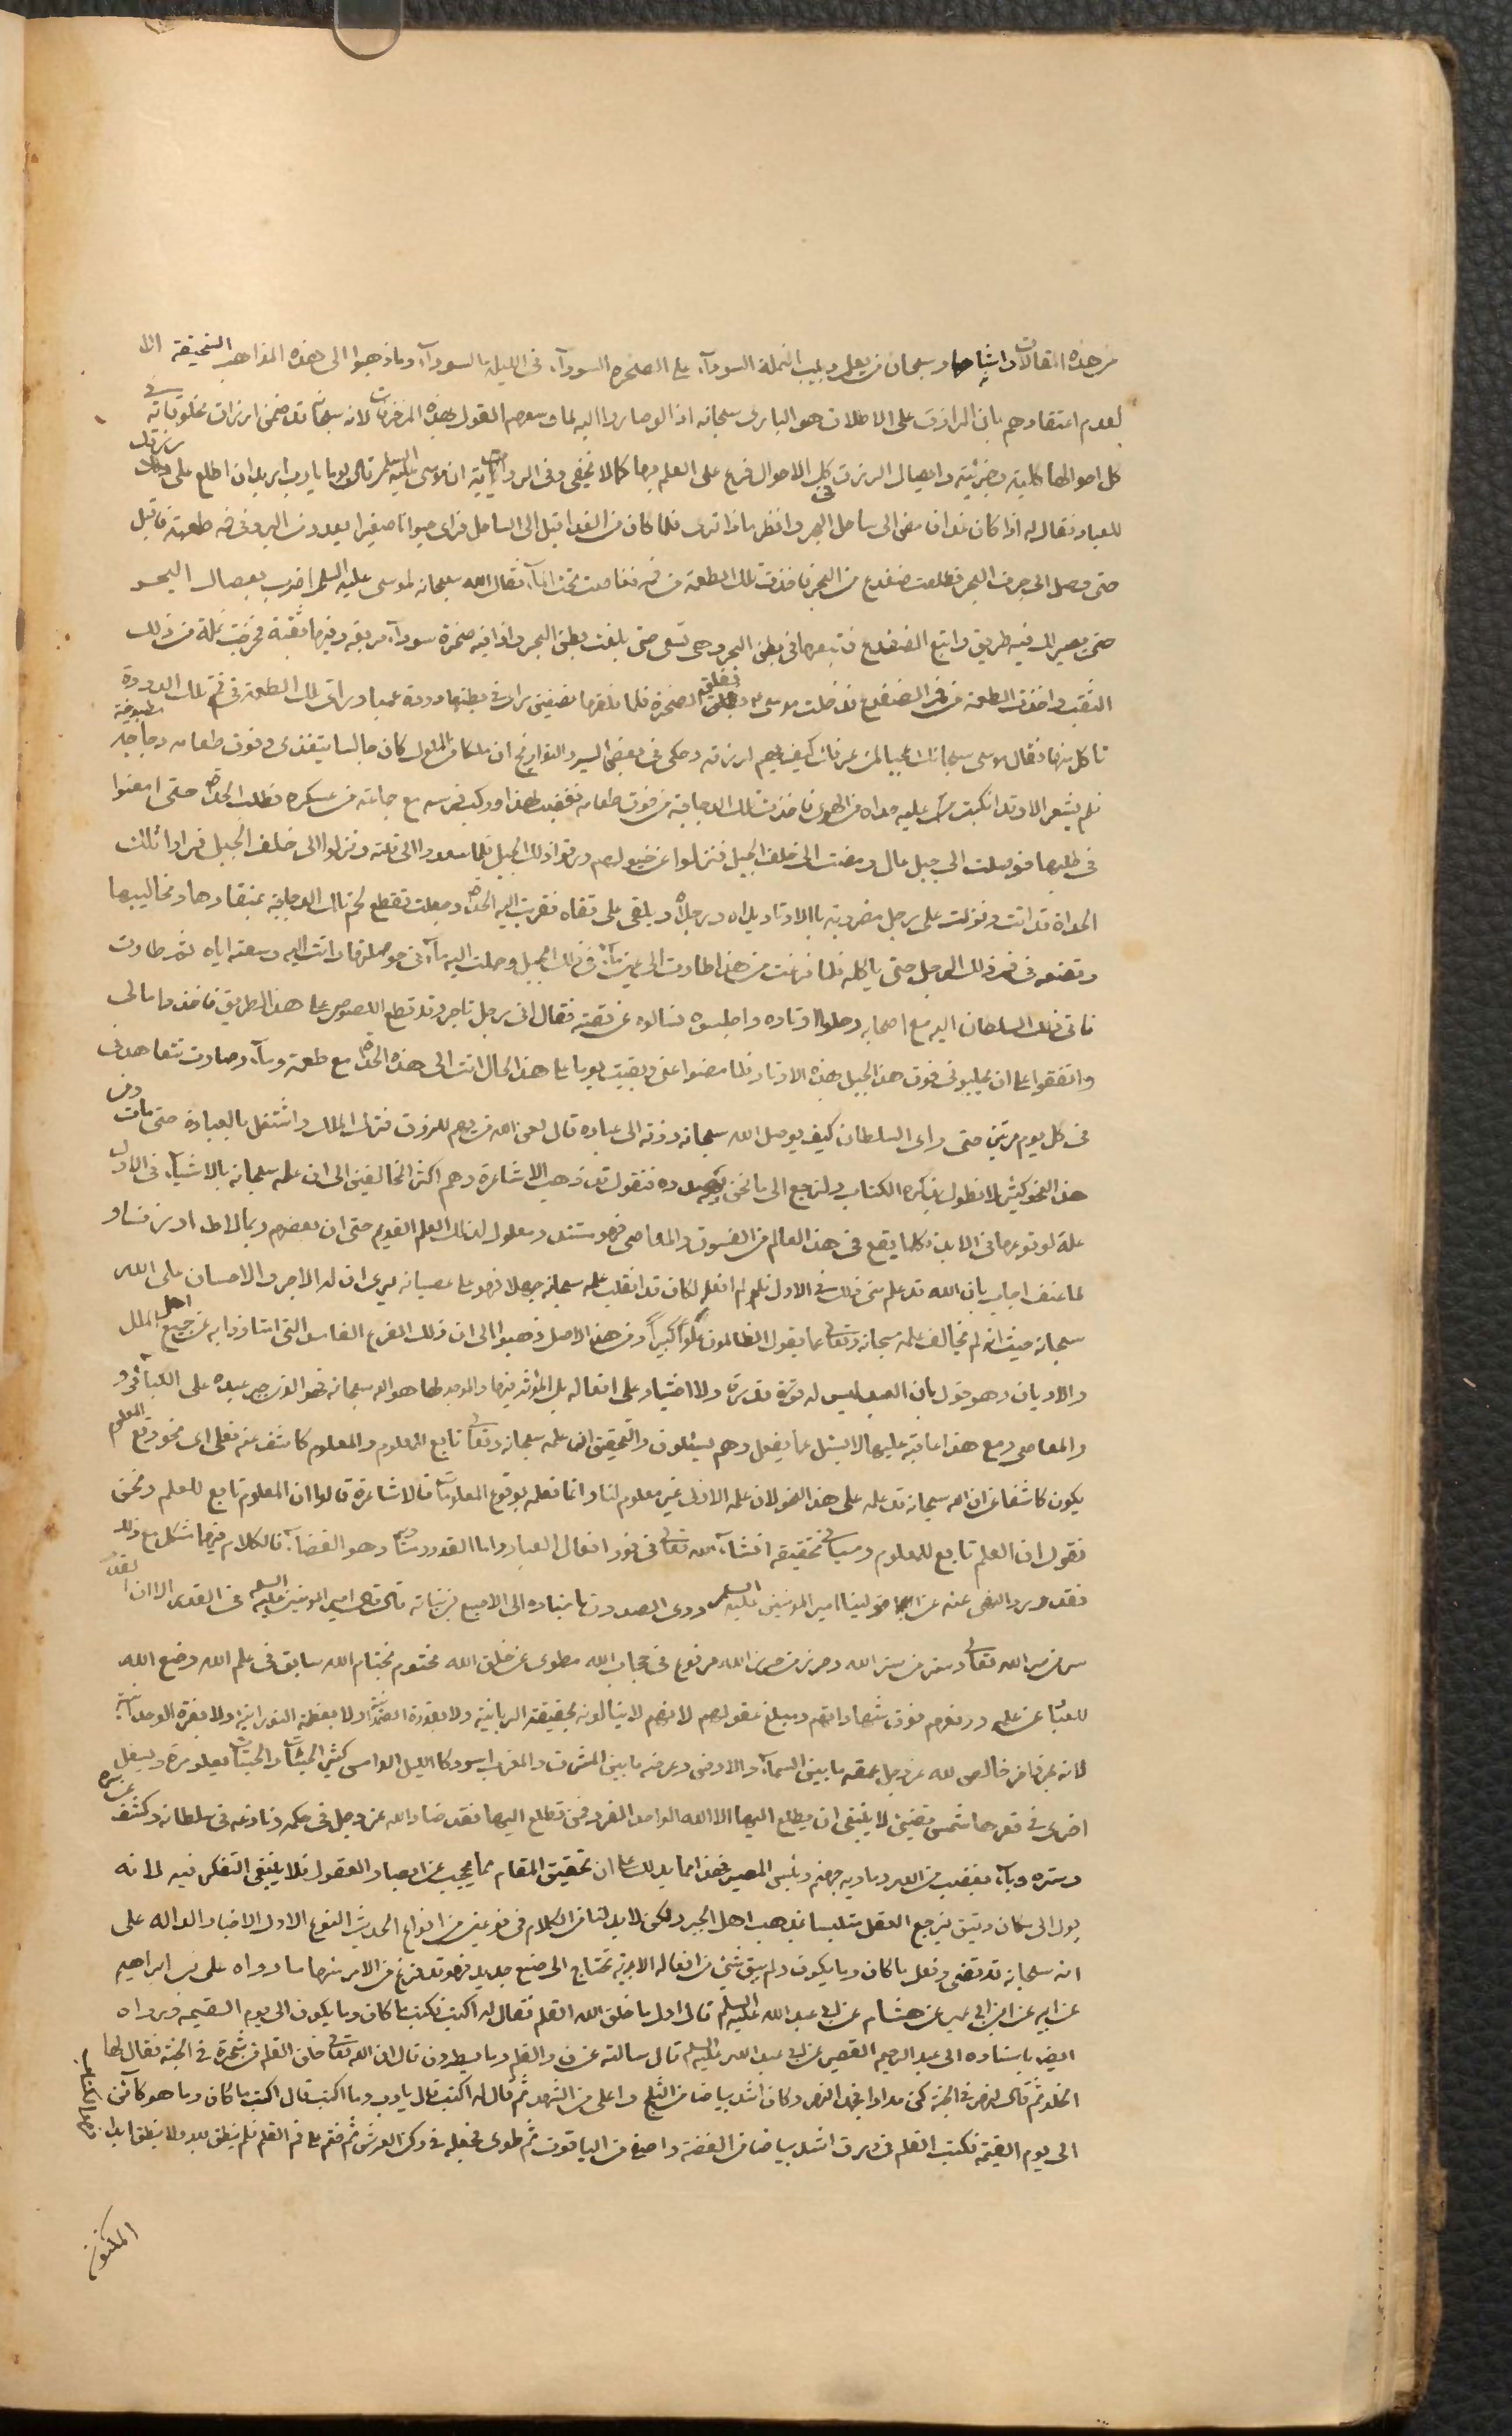 من هذه المقالات واشباهها وسبحان من يعلم دبيب النملة السودآء على الصخرة السودآء فى الليلة السودآء وما ذهبوا الى هذه المذاهب السخيفة الا
لعدم اعتقادهم بان الرازق على الاطلاق هو البارى سبحانه اذ لو صاروا اليه لما وسعهم القول بهذه المزخرفات لانه سبحانه قد ضمن ارزاق مخلوقاته فى
كل احوالها كلية وجزئية وايصال الرزق فى كل الاحوال فرع على العلم بها كما لا يخفى وفى الرواية ان موسى عليه السلم قال يوما يا رب اريد ان اطلع على رزقك
للعباد فقال له اذا كان غدا فامض الى ساحل البحر وانظر ماذا ترى فلما كان من الغد اقبل الى الساحل فراى حيوانا صغيرا يعدو من البر وفى فمه طعمة فاقبل
حتى وصل الى جرف البحر فطلعت ضفدع من البحر فاخذت تلك الطعمة من فمه فغاصت تحت المآء فقال الله سبحانه لموسى عليه السلم اضرب بعصاك البحر
حتى يصير لك فيه طريق واتبع الضفدع فتبعها فى بطن البحر وهى تسعى حتى بلغت بطن البحر واذا فيه صخرة سودآء مربعة وفيها ثقبة فخرجت نملة من ذلك
الثقب واخذت الطعمة من فم الضفدع فدخلت موسى ففلق الصخرة فلما فلقها نصفين راى فى بطنها دودة عميا وراى تلك الطعمة فى فم تلك الدودة
تاكل منها فقال موسى سبحانك عجبا لمن عرفك كيف يهتم لرزقه وحكى فى بعض السير والتواريخ ان ملكا من الملوك كان جالسا يتغذى وفوق طعامه دجاجة مطبوخة
فلم يشعر الا وقد انكبت عليه حداة من الهوى فاخذت تلك الدجاجة من فوق طعامه فغضب لهذا وركب فرسه مع جماعة من عسكره فطلب الحداة حتى امعنوا
فى طلبها فوصلت الى جبل عال ومضت الى خلف الجبل فنزلوا عن خيولهم ورقوا ذلك الجبل فلما صعدوا الى قلته ونزلوا الى خلف الجبل فراوا تلك
الحداة قد اتت ونزلت على رجل مضروبة بالاوتاد يداه ورجلاه وملقى على قفاه فقربت اليه الحداة وجعلت تقطع لحم تلك الدجاجة بمنقارها ومخاليبها
وتضعه فى فم ذلك الرجل حتى ياكله فلما فرغت من هذا طارت الى عين مآء فى ذلك الجبل وحملت اليه مآء فى حوصلتها واتت اليه وسقته اياه ثم طارت
فاتى ذلك السلطان اليه مع اصحابه وحلوا اوتاده واجلسوه فسالوه عن قصته فقال انى رجل تاجر وقد قطع اللصوص على هذا الطريق فاخذوا مالى
واتفقوا على ان يصلبونى فوق هذا الجبل بهذه الاوتاد فلما مضوا عنى وبقيت يوما على هذا الحال اتت الى هذه الحداة مع طعمة ومآء وصارت تتعاهدنى
فى كل يوم مرتين حتى راى السلطان كيف يوصل الله سبحانه رزقه الى عباده قال لعن الله من يهتم للرزق فترك الملك واشتغل بالعبادة حتى مات ومن
هذا النحو كثير لا نطول بذكره الكتاب ولنرجع الى ما نحن بصدده فنقول قد ذهب الاشاعرة وهم اكثر المخالفين الى ان علمه سبحانه بالاشيآء فى الازل
علة لوقوعها فى الابد فكلما يقع فى هذا العالم من الفسوق والمعاصى فهو مستند ومعلول لذلك العلم القديم حتى ان بعضهم ربما لاط او زنى فسادا
لما عنف اجاب بان الله قد علم منى ذلك فى الازل فلو لم افعله لكان قد انقلب علمه سبحانه جهلا فهو على عصيانه يرى ان له الاجر والاحسان على الله
سبحانه حيث انه لم يخالف علمه سبحانه وتعالى عما يقول الظالمون علوا كبيرا ومن هذا الاصل ذهبوا الى ان ذلك الفرع الفاسد التى امتازوا به عن جميع اهل الملل
والاديان وهو قول بان العبد ليس له قوة قدرة ولا اختيار على افعاله بل المؤثر فيها والموجد لها هو الله سبحانه فهو الذى جبر عبده على الكبائر و
والمعاصى ومع هذا عاقبه عليها لا يسئل عما يفعل وهم يسئلون والتحقيق ان علمه سبحانه وتعالى تابع للمعلوم والمعلوم كاشف عنه فعلى اى نحو وقع المعلوم
يكون كاشفا عن ان الله سبحانه قد علمه على هذا النحو لان علمه الازلى غير معلوم لنا وانما نعلمه بوقوع المعلومات فالاشاعرة قالوا ان المعلوم تابع للعلم ونحن
نقول ان العلم تابع للمعلوم وسياتى تحقيقه انشآء الله تعالى فى نور افعال العباد واما القدر وسياتى وهو القضآء فالكلام فيهما مشكل مع ذلك
فقد ورد النهى عنه عن مولينا امير المومنين عليه السلم روى الصدوق باسناده الى الاصبغ بن نباته قال قال امير المومنين عليه السلم فى القدر الا ان القدر
سر من سر الله تعالى وستر من ستر الله وحرز من حرز الله مرفوع فى حجاب الله مطوى عن خلق الله مختوم بخاتم الله سابق فى علم الله وضع الله
للعباد عن علمه ورفعه فوق شهاداتهم ومبلغ عقولهم لانهم لا ينالونه بحقيقة الربانية ولا بقدرة الصمدانية ولا بعظمة النورانية ولا بعزة الوحدانية
لانه بحر زاخر خالص لله عز وجل عمقه ما بين السمآء والارض وعرضه ما بين المشرق والمغرب اسود كالليل الدامس كثير الحيات والحيتان يعلو مرة ويسفل
اخرى فى قعرها شمس تضيئ لا ينبغى ان يطلع اليها الا الله الواحد الفرد فمن تطلع اليها فقد ضاد الله عز وجل فى حكمه ونازعه فى سلطانه وكشف عن سره
وستره وبآء بغضب من الله وماويه جهنم وبئس المصير فهذا مما يدلك على ان تحقيق المقام مما يحجب عن ابصار العقول فلا ينبغى التفكر فيه لانه
يول الى مكان دقيق فيرجع العقل متلبسا بمذهب اهل الجبر ولكن لا بد لنا من الكلام فى نوعين من انواع الحديث النوع الاول الاخبار الداله على
انه سبحانه قد قضى وفعل ما كان وما يكون ولم يبق شيئ من افعاله الابدية تحتاج الى صنع جديد فهو قد فرغ من الامر منها ما رواه على بن ابراهيم
عن ابيه عن ابن ابى عمير عن هشام عن ابى عبد الله عليه السلم قال اول ما خلق الله القلم فقال له اكتب فكتب ما كان وما يكون الى يوم القيمه وروا
ايضا باسناده الى عبد الرحيم القصير عن ابى عبد الله عليه السلم قال سالته عن ن والقلم وما يسطرون قال ان الله تعالى خلق القلم من شجرة فى الجنة فقال لها
الخلد ثم قال لنهر فى الجنة كن مدادا فجمد النهر وكان اشد بياضا من الثلج واحلى من الشهد ثم قال له اكتب قال يا رب وما اكتب قال اكتب ما كان وما هو كائن
الى يوم القيمة فكتب القلم فى رق اشد بياضا من الفضة واصفى من الياقوت ثم طوى فجعله فى ركن العرش ثم ختم على فم القلم فلم ينطق بعد ولا ينطق ابدا فهو الكتاب
المكنون